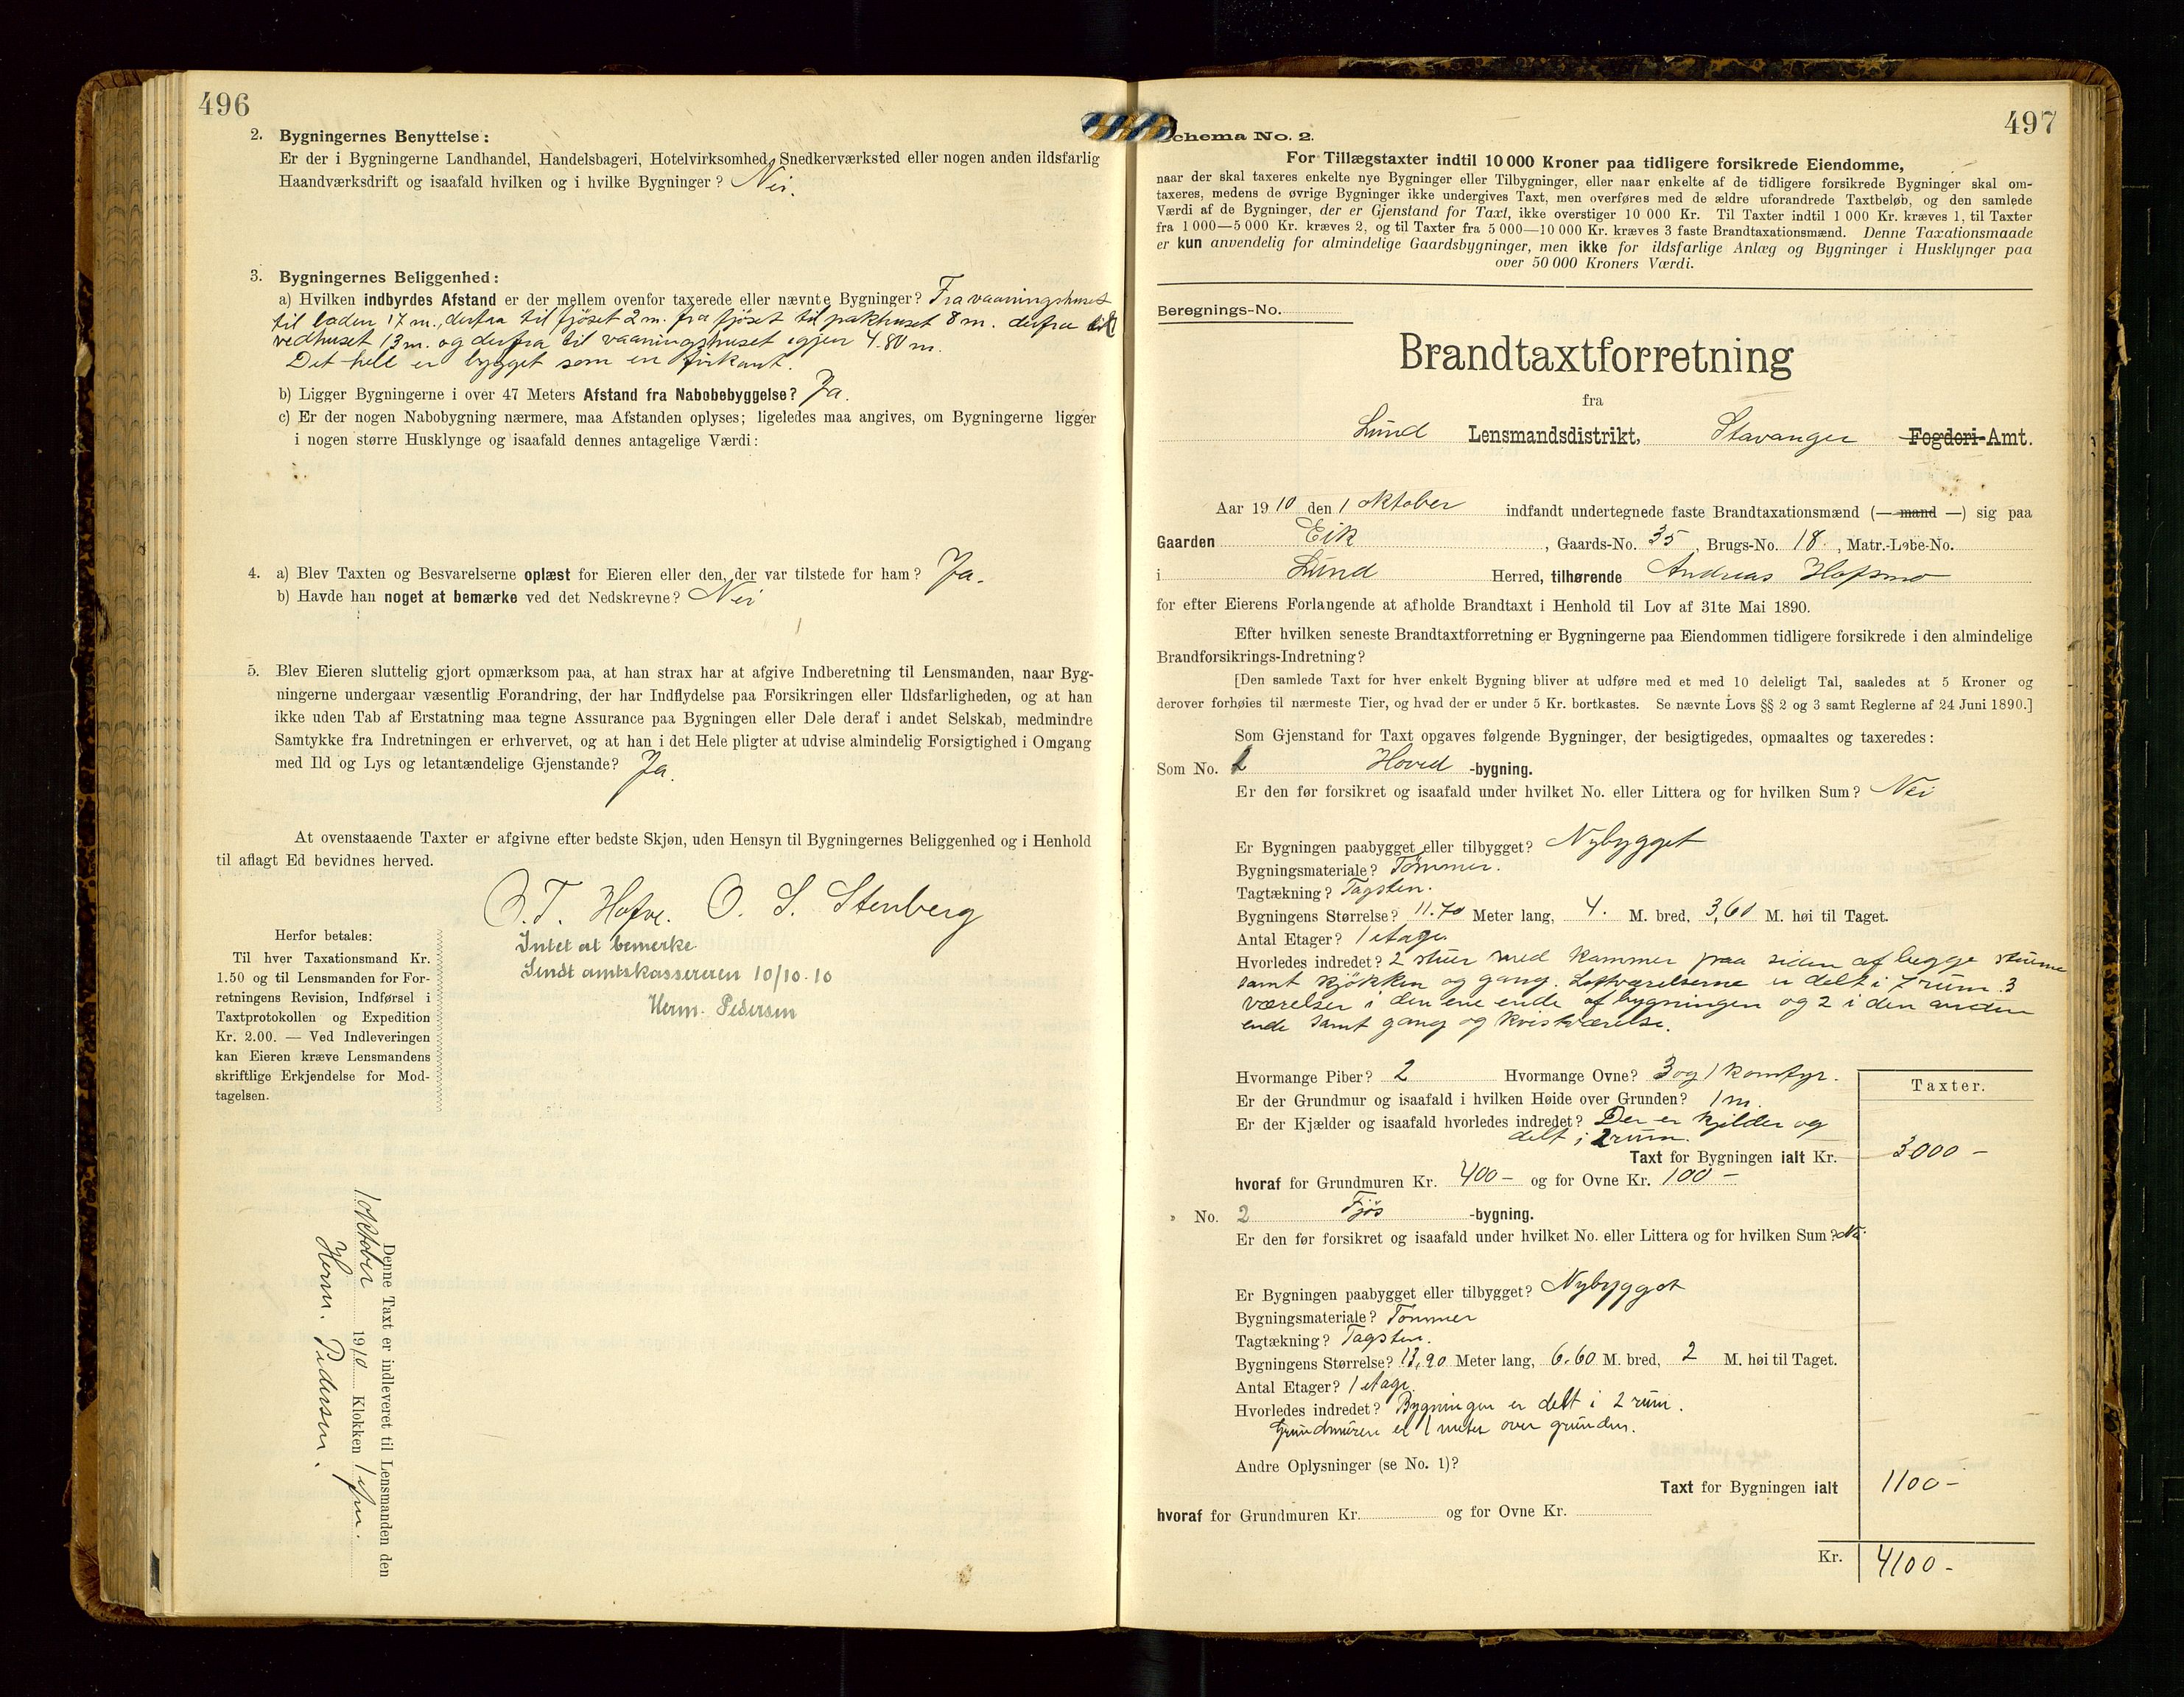 496
2. Bygningernes Benyttelse:
Er der i Bygningerne Landhandel, Handelsbageri, Hotelvirksomhed, Snedkerværksted eller nogen anden ildsfarlig
Haandværksdrift og isaafald hvilken og i hvilke Bygninger? Nei.
3. Bygningernes Beliggenhed:
a) Hvilken indbyrdes Afstand er der mellem ovenfor taxerede eller nævnte Bygninger? Fra vaaningshuset
til laden 17 m., derfra til fjøset 2 m. fra fjøset til pakhuset 8 m. derfra til
vedhuset 13 m. og derfra til vaaningshuset igjen 4.80 m.
Det hele er bygget som en firkant.
b) Ligger Bygningerne i over 47 Meters Afstand fra Nabobebyggelse? Ja.
c) Er der nogen Nabobygning nærmere, maa Afstanden oplyses; ligeledes maa angives, om Bygningerne ligger
i nogen større Husklynge og isaafald dennes antagelige Værdi:
4. a) Blev Taxten og Besvarelserne oplæst for Eieren eller den, der var tilstede for ham? Ja.
b) Havde han noget at bemærke ved det Nedskrevne? Nei
5. Blev Eieren sluttelig gjort opmærksom paa, at han strax har at afgive Indberetning til Lensmanden, naar Byg-
ningerne undergaar væsentlig Forandring, der har Indflydelse paa Forsikringen eller Ildsfarligheden, og at han
ikke uden Tab af Erstatning maa tegne Assurance paa Bygningen eller Dele deraf i andet Selskab, medmindre
Samtykke fra Indretningen er erhvervet, og at han i det Hele pligter at udvise almindelig Forsigtighed i Omgang
med Ild og Lys og letantændelige Gjenstande? Ja.
At ovenstaaende Taxter er afgivne efter bedste Skjøn, uden Hensyn til Bygningernes Beliggenhed og i Henhold
til aflagt Ed bevidnes herved.
T. O. S. Stenberg
Intet at bemerke
Sendt amtskassereren 10/10-10
Herm. Pedersen
Herfor betales:
Til hver Taxationsmand Kr.
1.50 og til Lensmanden for For-
retningens Revision, Indførsel i
Taxtprotokollen og Expedition
Kr. 2.00. — Ved Indleveringen
kan Eieren kræve Lensmandens
skriftlige Erkjendelse for Mod-
tagelsen.
Denne Taxt er indleveret til Lensmanden den
1 oktober 1910 Klokken 1
Herm. Pedersen.
497
Schema No. 2.
For Tillægstaxter indtil 10 000 Kroner paa tidligere forsikrede Eiendomme,
naar der skal taxeres enkelte nye Bygninger eller Tilbygninger, eller naar enkelte af de tidligere forsikrede Bygninger skal om-
taxeres, medens de øvrige Bygninger ikke undergives Taxt, men overføres med de ældre uforandrede Taxtbeløb, og den samlede
Værdi af de Bygninger, der er Gjenstand for Taxt, ikke overstiger 10 000 Kr. Til Taxter indtil 1 000 Kr. kræves 1, til Taxter
fra 1 000—5 000 Kr. kræves 2, og til Taxter fra 5 000—10 000 Kr. kræves 3 faste Brandtaxationsmænd. Denne Taxationsmaade
er kun anvendelig for almindelige Gaardsbygninger, men ikke for ildsfarlige Anlæg og Bygninger i Husklynger paa
over 50 000 Kroners Værdi.
Beregnings-No.
Brandtaxtforretning
fra
Lund Lensmandsdistrikt, Stavanger Fogderi-Amt.
Aar 1910 den 1 oktober indfandt undertegnede faste Brandtaxationsmænd (— mand —) sig paa
Gaarden Eik, Gaards-No. 35, Brugs-No. 18, Matr.-Løbe-No.
i Lund Herred, tilhørende Andreas Hofsmo
for efter Eierens Forlangende at afholde Brandtaxt i Henhold til Lov af 31te Mai 1890.
Efter hvilken seneste Brandtaxtforretning er Bygningerne paa Eiendommen tidligere forsikrede i den almindelige
Brandforsikrings-Indretning?
[Den samlede Taxt for hver enkelt Bygning bliver at udføre med et med 10 deleligt Tal, saaledes at 5 Kroner og
derover forhøies til nærmeste Tier, og hvad der er under 5 Kr. bortkastes. Se nævnte Lovs §§ 2 og 3 samt Reglerne af 24 Juni 1890.]
Som Gjenstand for Taxt opgaves følgende Bygninger, der besigtigedes, opmaaltes og taxeredes:
Som No. 1 Hoved -bygning.
Er den før forsikret og isaafald under hvilket No. eller Littera og for hvilken Sum? Nei
Er Bygningen paabygget eller tilbygget? Nybygget
Bygningsmateriale? Tømmer.
Tagtækning? Tagsten.
Bygningens Størrelse? 11.70 Meter lang, 4. M. bred, 3,60 M. høi til Taget.
Antal Etager? 1 etage
Hvorledes indredet? 2 stuer med kammer paa siden af begge stuerne
samt kjøkken og gang. Loftværelserne er delt i 7 rum. 3
værelser i den ene ende af bygningen og 2 i den anden
ende samt gang og kvistværelse.
Hvormange Piber? 2 Hvormange Ovne? 3 og 1 komfyr.
Er der Grundmur og isaafald i hvilken Høide over Grunden? 1 m.
Er der Kjælder og isaafald hvorledes indredet? Der er kjelder og
delt i 2 rum.
Taxter.
Taxt for Bygningen ialt Kr. 3000 -
hvoraf for Grundmuren Kr. 400 - og for Ovne Kr. 100 -
" No. 2 Fjøs -bygning.
Er den før forsikret og isaafald under hvilket No. eller Littera og for hvilken Sum? Nei.
Er Bygningen paabygget eller tilbygget? Nybygget
Bygningsmateriale? Tømmer
Tagtækning? Tagsten.
Bygningens Størrelse? 13,90 Meter lang, 6.60 M. bred, 2 M. høi til Taget.
Antal Etager? 1 etage.
Hvorledes indredet? Bygningen er delt i 2 rum.
Grundmuren er 1 meter over grunden.
Andre Oplysninger (se No. 1)?
Taxt for Bygningen ialt 1100 -
hvoraf for Grundmuren Kr. og for Ovne Kr.
Kr. 4100 -